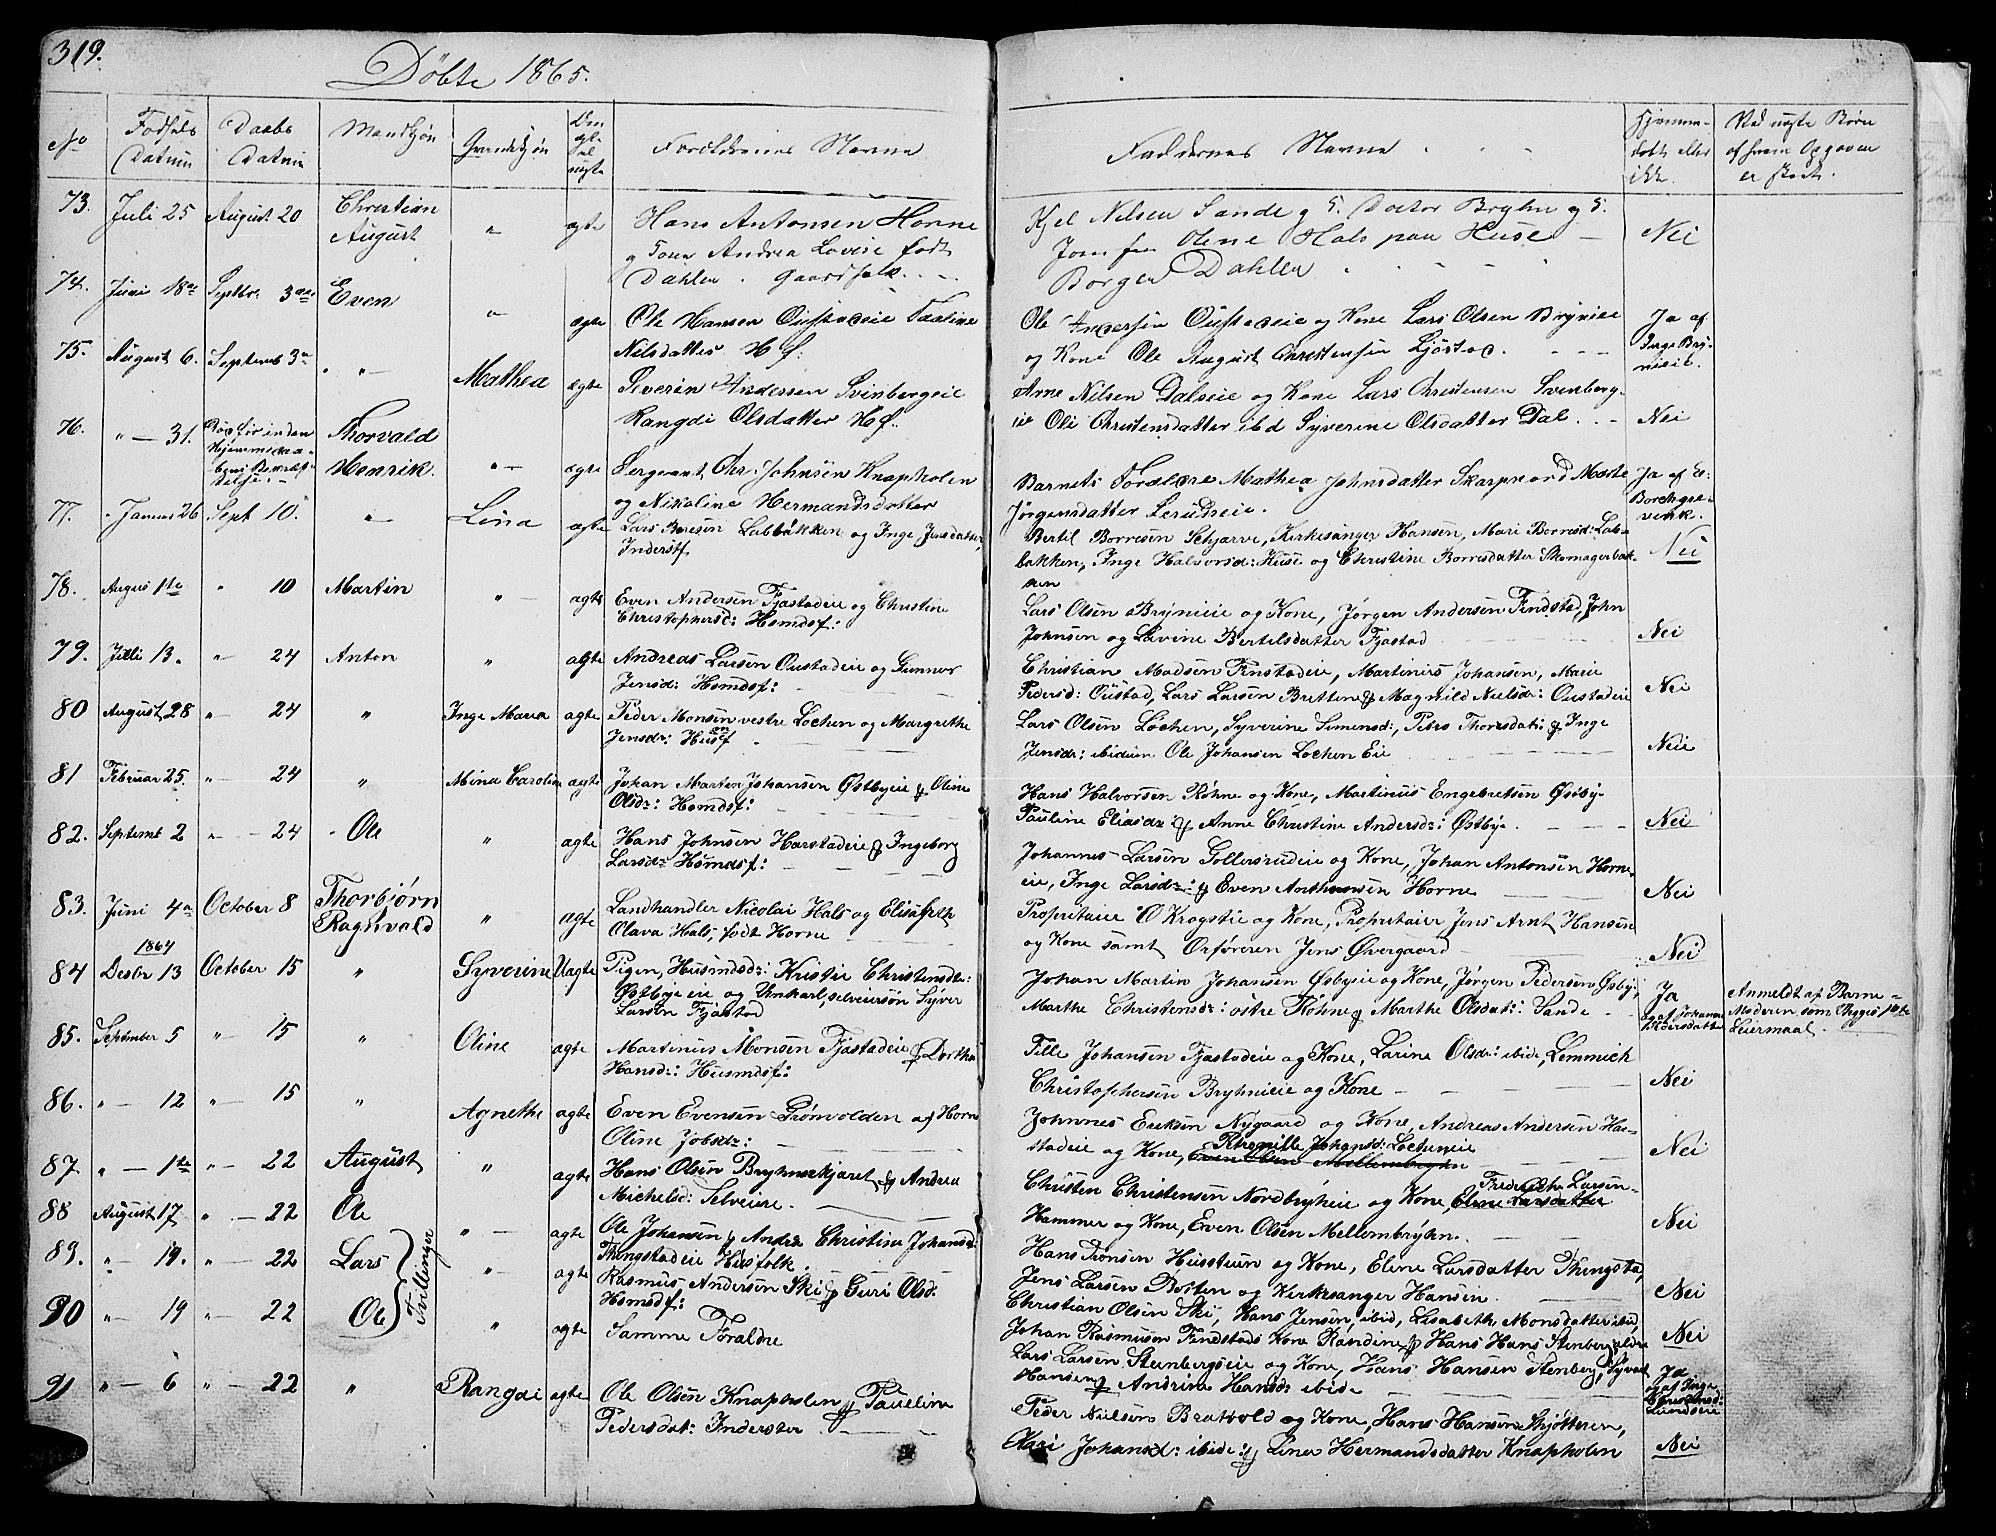 319.
Døbte 1865.
No
Fødsels Datum
Daabs Datum
Mandkjøn
Qvindekjøn
Om ægte el uægte
Forældrenes Navne
Faddernes Navne
Hjemmedøbt eller ikke.
Ved uægte Børn af hvem Opgaven er skedt.
73. Juli 25 August 20 Christian August " ægte
Hans Antonsen Horne
g Kone Andrea Lovise født
Dahlen. Gaardfolk.
Kjel Nilsen Sande g F. Doctor Bryhn g F.
Jomfru Oline Hals paa Huse
Borger Dahlen
Nei
74. Juni 18de Septbr 3die Even " ægte
Ole Hansen Oustadeie
Nilsdatter H f:
Ole Andersen Oustadeie og Kone Lars Olsen Brynieie
og Kone Ole August Christensen Ljøstad.
Ja af Inge Brynieie.
75. August 6. Septemb 3die " Mathea ægte
Severin Andersen Svinbergeie
Rangdi Olsdatter H f.
Arne Nilsen Dalseie og Kone Lars Christensen Svenbergeie
Oli Christensdatter ibd Syverine Olsdatter Dal.
Nei
76. " 31. Thorvald Henrik. " ægte
Sergeant Chr. Johnsen Knapholen
og Nikoline Hermandsdatter
Barnets Forældre Mathea Johnsdatter Skarpnord Marte
Jørgensdatter Lerudseie.
Ja af
77. Januar 26 Sept 10. " Lina ægte
Lars Borresen Labbakken og Inge Jensdatter
Inderstf.
Bertil Borresen Schjarve, Kirkesanger Hansen, Mari Borresd: Labbakken,
Inge Halvorsd: Huse og Christine Borresdatter Skomagerbakken
Nei
78. Augus 1te " 10 Martin " ægte
Even Andersen Fjæstadeie og Christine
Christophersd: Hsmdsf:
Lars Olsen Brynieie og Kone, Jørgen Andersen Findstad, John
Johnsen og Levine Bertelsdatter Fjæstad
Nei
79. Juli 13. " 24 Anton " ægte
Andreas Larsen Oustadeie og Gunnor
Jensd: Hsmdsf:
Christian Madsen Finstadeie, Martinius Johansen, Marie
Pedersd: Oustad, Lars Larsen Britten & Magnild Nielsdr: Oustadeie
Nei
80 August 28 " 24 " Inge Marea ægte
Peder Monsen vestre Løchen og Margrethe
Jensdr: Husmf
Lars Olsen Løchen, Syverine Simensd:, Petro Thoresdat: & Inge
Jensdr: ibidum Ole Johansen Løchen Eie
Neie
81 Februar 25. " 24 " Mina Caroline ægte
Johan Martin Johansen Østbyeie & Oline
Olsdr: Hsmdsf:
Hans Halvorsen Røhne og Kone, Martinius Engebretsen Østby
Pauline Eliasdr: & Anne Christine Andersdr: Østby.
Nei
82. Septemt 2 " 24 Ole " ægte
Hans Johnsen Harstadeie & Ingeborg
Larsdr: Hsmdsf:
Johannes Larsen Gollersrudeie og Kone, Johan Antonsen Horneeie,
Inge Larsdr: & Even Anthonsen Horne
Nei
83. Juni 4de October 8 Thorbjørn Ragnvald " ægte
Landhandler Nicolai Hals og Elisabeth
Olava Hals, født Horne
Propritaier O Krogstie og Kone, Propritaier Jens Arnt Hansen
og Kone samt Orføreren Jens Øvergaard
Nei
84 1864 Desbr 13 October 15 " Syverine Uægte
Pigen, Husmdsdr: Kristie Christensdr:
Østbyeie og Unkarl, selveiersøn Syver
Larsen Fjæstad
Johan Martin Johansen Øsbyeie og Kone, Jørgen Pedersen Øsby,
Marthe Christensdr: østre Røhne & Marthe Olsdat: Sande
Ja og af Johanne Pedersdatter
Anmeldt af Barnemoderen som begges 1ste Leiermaal.
85. September 5 " 15 " Oline ægte
Martinius Monsen Fjæstadeie & Dorthe
Hansdr: Husmdsf:
Tille Johansen Fjæstadeie og Kone, Larine Olsdr: ibide, Lemmich
Christophersen Bryhnieie og Kone
Nei
86. " 12 " 15 " Agnethe ægte
Even Evensen Grønvolden af Horn
Oline Jobsdr:
Johnnes Eriksen Nygaard og Kone, Andreas Andersen Harstadeie
og Kone, Petronille Johansd: Løcheneie
Even Olsen Mellembryhn
Nei
87. " 1te " 22 August " ægte
Hans Olsen Bryhnskjæret & Andrea
Michelsd: Selveiere.
Christen Christensen Nordbryheie og Kone, Frederik Larsen
Elene Larsdatter
Hammer og Kone, Even Olsen Mellembryhn.
Nei
88 August 17 " 22 Ole " ægte
Ole Johansen & Andrea Christine Johansd:
Thingstadeie Husfolk.
Hans Tronsen Husstuen og Kone, Elene Larsdatter Thingsta,
Jens Larsen Botten og Kirkesanger Hansen.
Nei
89. " 19. " 22 Lars " ægte
Rasmus Andersen Ski & Guri Olsd:
Hsmdsf:
Christian Olsen Ski, Hans Jensen, ibid, Lisabeth Monsdatter ibid,
Nei
90 " 19 " 22 Ole " ægte
Tvillinger
Samme Foraldre
Johan Rasmusen Findstads Kone Randine & Hans Hans Stenberg
Lars Larsen Stenbergseie og Kone, Hans Hansen Stenberg, Syver
Hansen & Andrine Hansd: ibide
Ja og af Inge Christensd: Lundseie
91 " 6 " 22 " Rangdi ægte
Ole Olsen Knapholen & Pauline
Pedersdat: Inderster
Peder Nielsen Bratvold og Kone, Hans Hansen Skjøtteren,
Kari Johansd: ibide: & Lina Hermandsdatter Knapholen
Nei